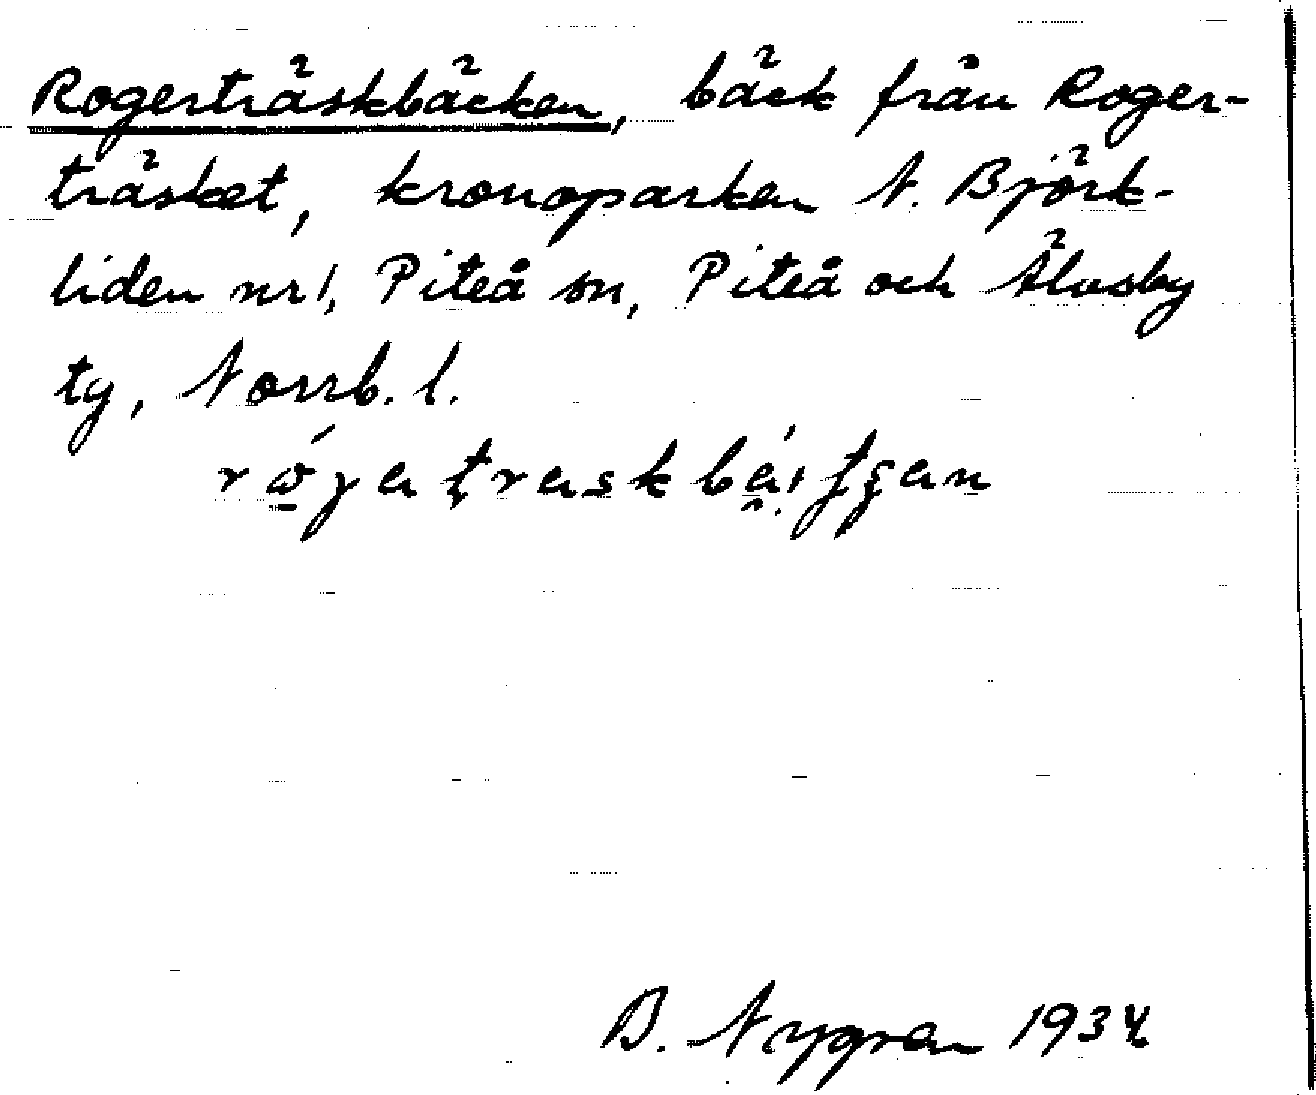 Rogerträskbäcken, bäck från Roger-
träsket, kronoparken N. Björk-
liden nr 1, Piteå sn, Piteå och Älvsby
tg, Norrb. l.
B. Nygren 1934